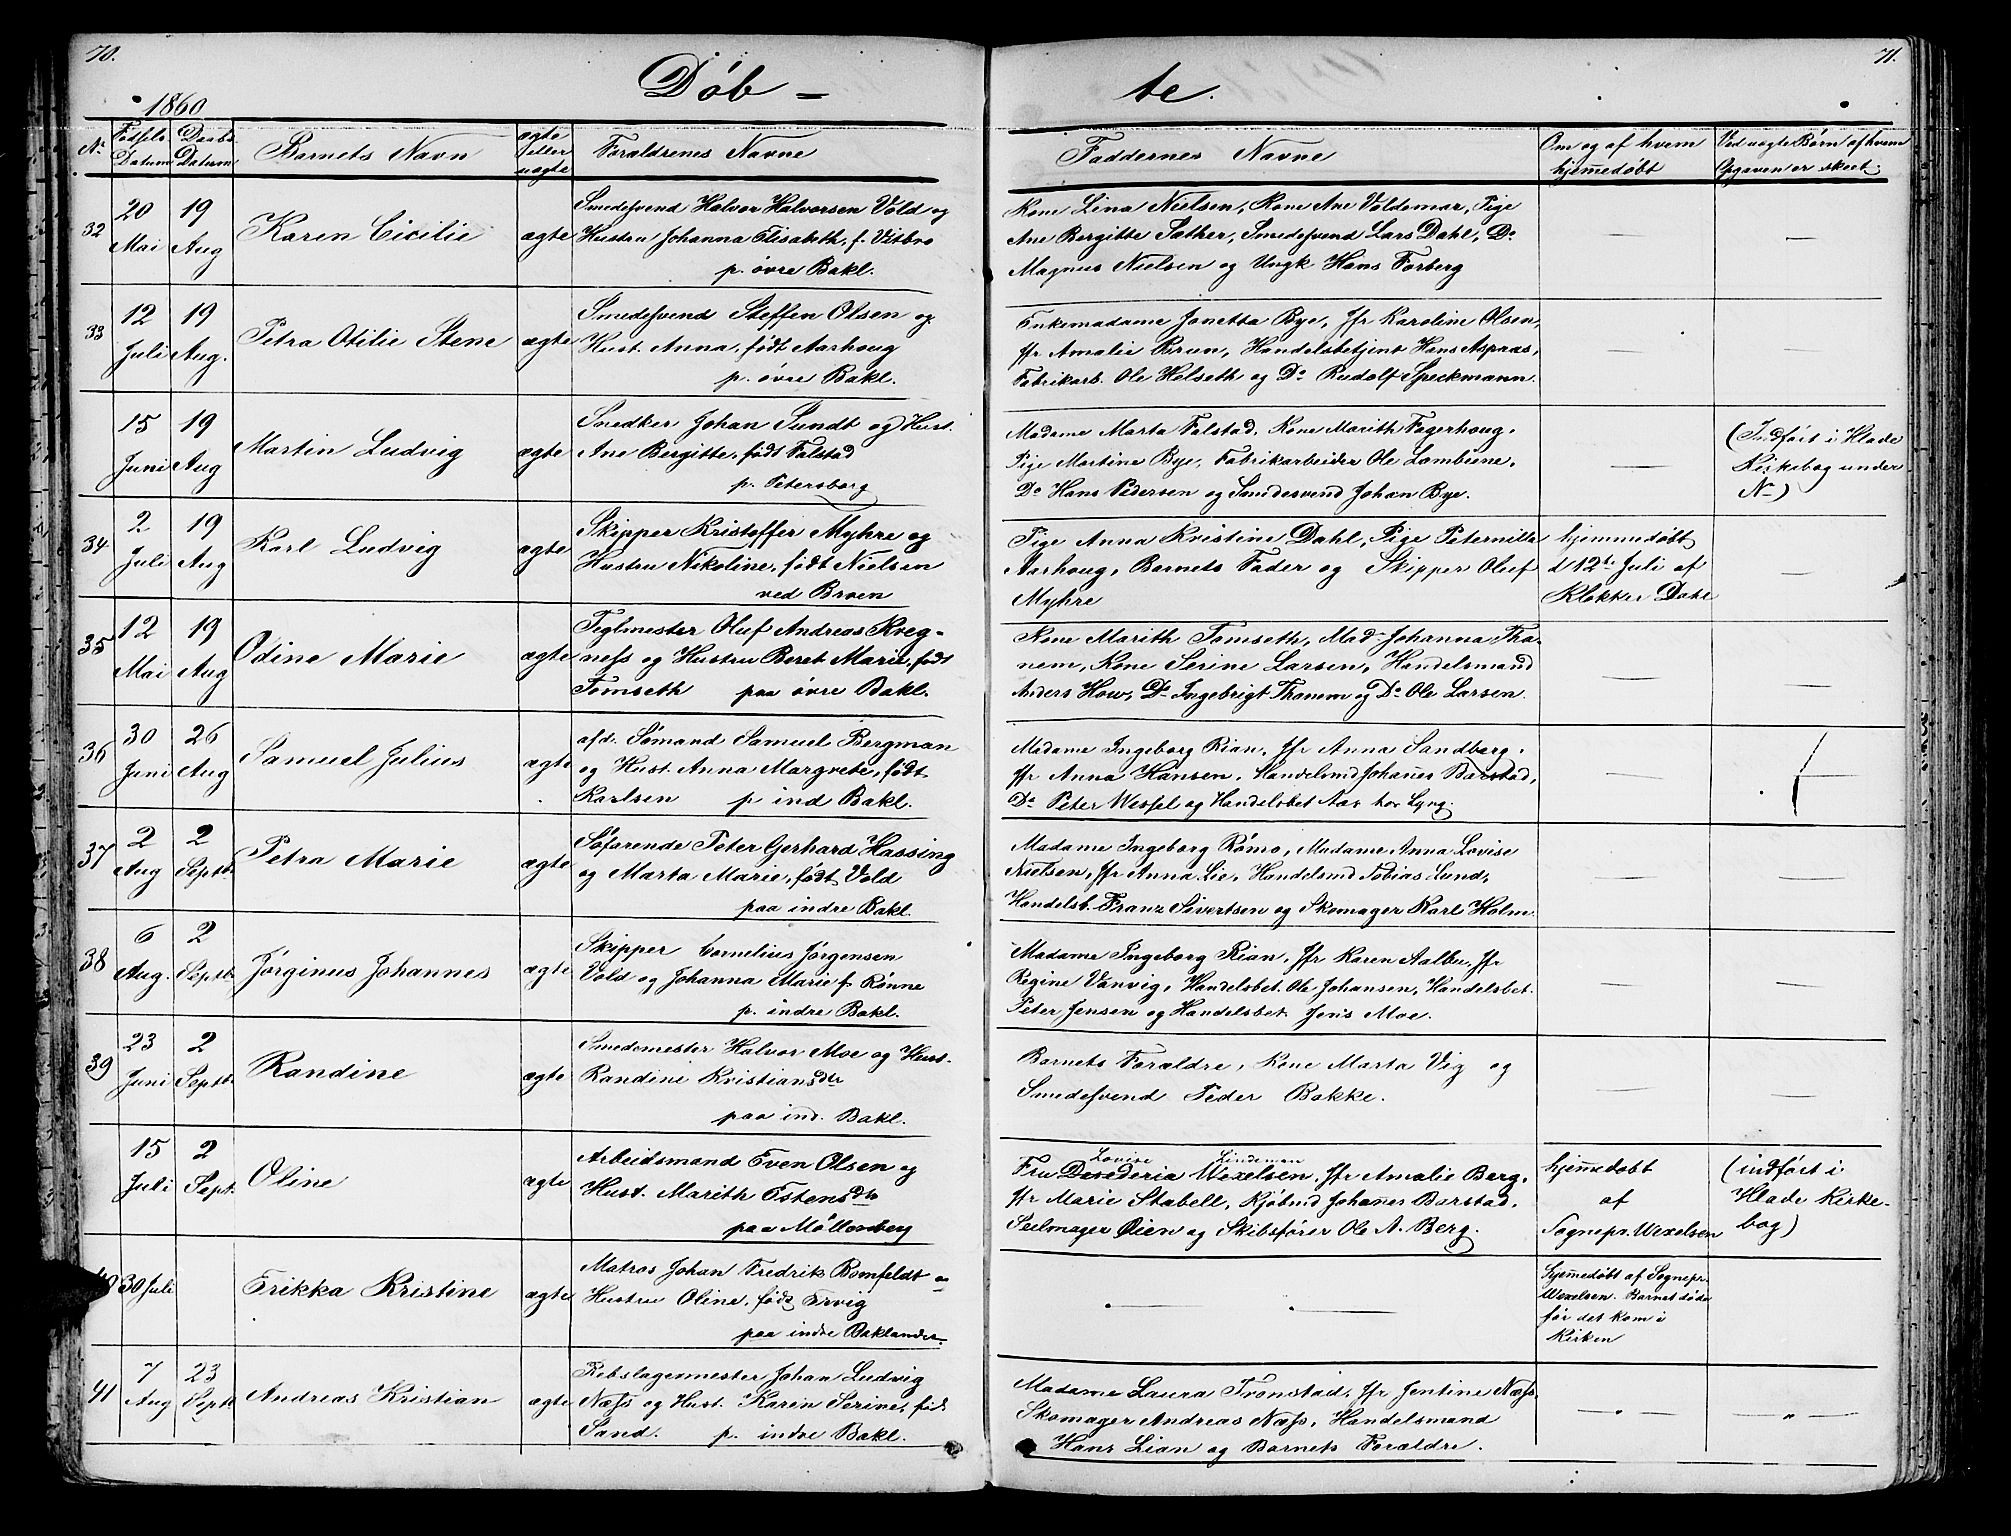 70.
71.
Døb -
te.
1860
No
Fødsels Datum
Daabs Datum
Barnets Navn
ægte eller uægte
Forældrenes Navne
Faddernes Navne
Om og af hvem hjemmedøbt
Ved uægte Børn af hvem Opgaven er skeet
32
20 Mai
19 Aug
Karen Cicilie
ægte
Smedesvend Halvor Halvorsen Vold og
Hustru Johanna Elisabeth, f. Vitbro
p. øvre Bakl.
Kone Lina Nielsen, Kone Ane Voldemar, Pige
Ane Bergitte Sæther, Smedesvend Lars Dahl, Do
Magnus Nielsen og Ungk Hans Forberg
33
12 Juli
19 Aug.
Petra Otilie Stene
ægte
Smedesvend Steffen Olsen og
Hust. Anna, født Aarhoug
p. øvre Bakl.
Enkemadame Jonetta Bye, Jfr Karoline Olsen,
Jfr Amalie Brun, Handelsbetjent Hans Aspaas,
Fabrikarb. Ole Helseth og Do Rudolf Speckmann.
15 Juni
19 Aug
Martin Ludvig
ægte
Snedker Johan Sundt og Hust.
Ane Bergitte, født Falstad
p. Petersborg
Madame Marta Falstad, Kone Marith Fagerhoug,
Pige Martine Bye, Fabrikarbeider Ole Lambiene,
Do Hans Pedersen og Smedesvend Johan Bye.
(Indført i Hlade
Kirkebog under
No)
34
2 Juli
19 Aug
Karl Ludvig
ægte
Skipper Kristoffer Myhre og
Hustru Nikoline, født Nielsen
ved Broen
Pige Anna Kristine Dahl, Pige Peternille
Aarhoug, Barnets Fader og Skipper Oluf
Myhre
hjemmedøbt
d 12te Juli af
Klokker Dahl
35
12 Mai
19 Aug
Odine Marie
ægte
Teglmester Oluf Andreas Kreg-
næss og Hustru Beret Marie, født
Tomseth paa øvre Bakl.
Kone Marith Tomseth, Mad. Johanna Tha-
nem, Kone Serine Larsen, Handelsmand
Anders How, Do Ingebrigt Thanem og Do Ole Larsen.
36
30 Juni
26 Aug
Samuel Julius
ægte
afd. Sømand Samuel Bergman
og Hust. Anna Margrete, født
Karlsen p ind Bakl.
Madame Ingeborg Rian, Jfr Anna Sandberg,
Jfr Anna Hansen, Handelsmd Johanes Barstad,
Do Peter Wessel og Handelsbet Aas hos Lyng.
37
2 Aug
2 Septb.
Petra Marie
ægte
Søfarende Peter Gerhard Hassing
og Marta Marie, født Vold
paa indre Bakl.
Madame Ingeborg Rømo, Madame Anna Lovise
Nielsen, Jfr Anna Lie, Handelsmd Tobias Lund,
Handelsb. Franz Sivertsen og Skomager Karl Holm.
38
6 Aug.
2 Septb.
Jørginus Johannes
ægte
Skipper Cornelius Jørgensen
Vold og Johanna Marie f. Rønne
p. indre Bakl.
Madame Ingeborg Rian, Jfr Karen Aalbu, Jfr
Regine Vanvig, Handelsbet. Ole Johansen, Handelsbet.
Peter Jensen og Handelsbet. Jens Moe.
39
23 Juni
2 Septb.
Randine
ægte
Smedemester Halvor Moe og Hust.
Randine Kristiansdtr
paa ind. Bakl.
Barnets Forældre, Kone Marta Vig og
Smedesvend Peder Bakke.
15 Juli
2 Sept.
Oline
ægte
Arbeidsmand Even Olsen og
Hust. Marith Estensdtr
paa Møllenberg
Lovise Lindeman
Fru Desederia Wexelsen, Jfr Amalie Berg,
Jfr Marie Stabell, Kjøbmd Johanes Barstad,
Seelmager Øien og Skibsfører Ole A. Berg.
hjemedøbt
af
Sognepr. Wexelsen
(indført i
Hlade Kirke-
bog)
40
30 Juli
Erikka Kristine
ægte
Matros Johan Fredrik Bomfeldt og
Hustru Oline, født Ervig
paa indre Baklandet.
Hjemedøbt af Sognepr.
Wexelsen. Barnet døde
før det kom i
Kirken
41
7 Aug
23 Septb
Andreas Kristian
ægte
Rebslagermester Johan Ludvig
Næss og Hust. Karen Serine, født
Sand. p. indre Bakl.
Madame Laura Trønstad, Jfr Jentine Næss,
Skomager Andreas Næss, Handelsmand
Hans Lian og Barnets Forældre.